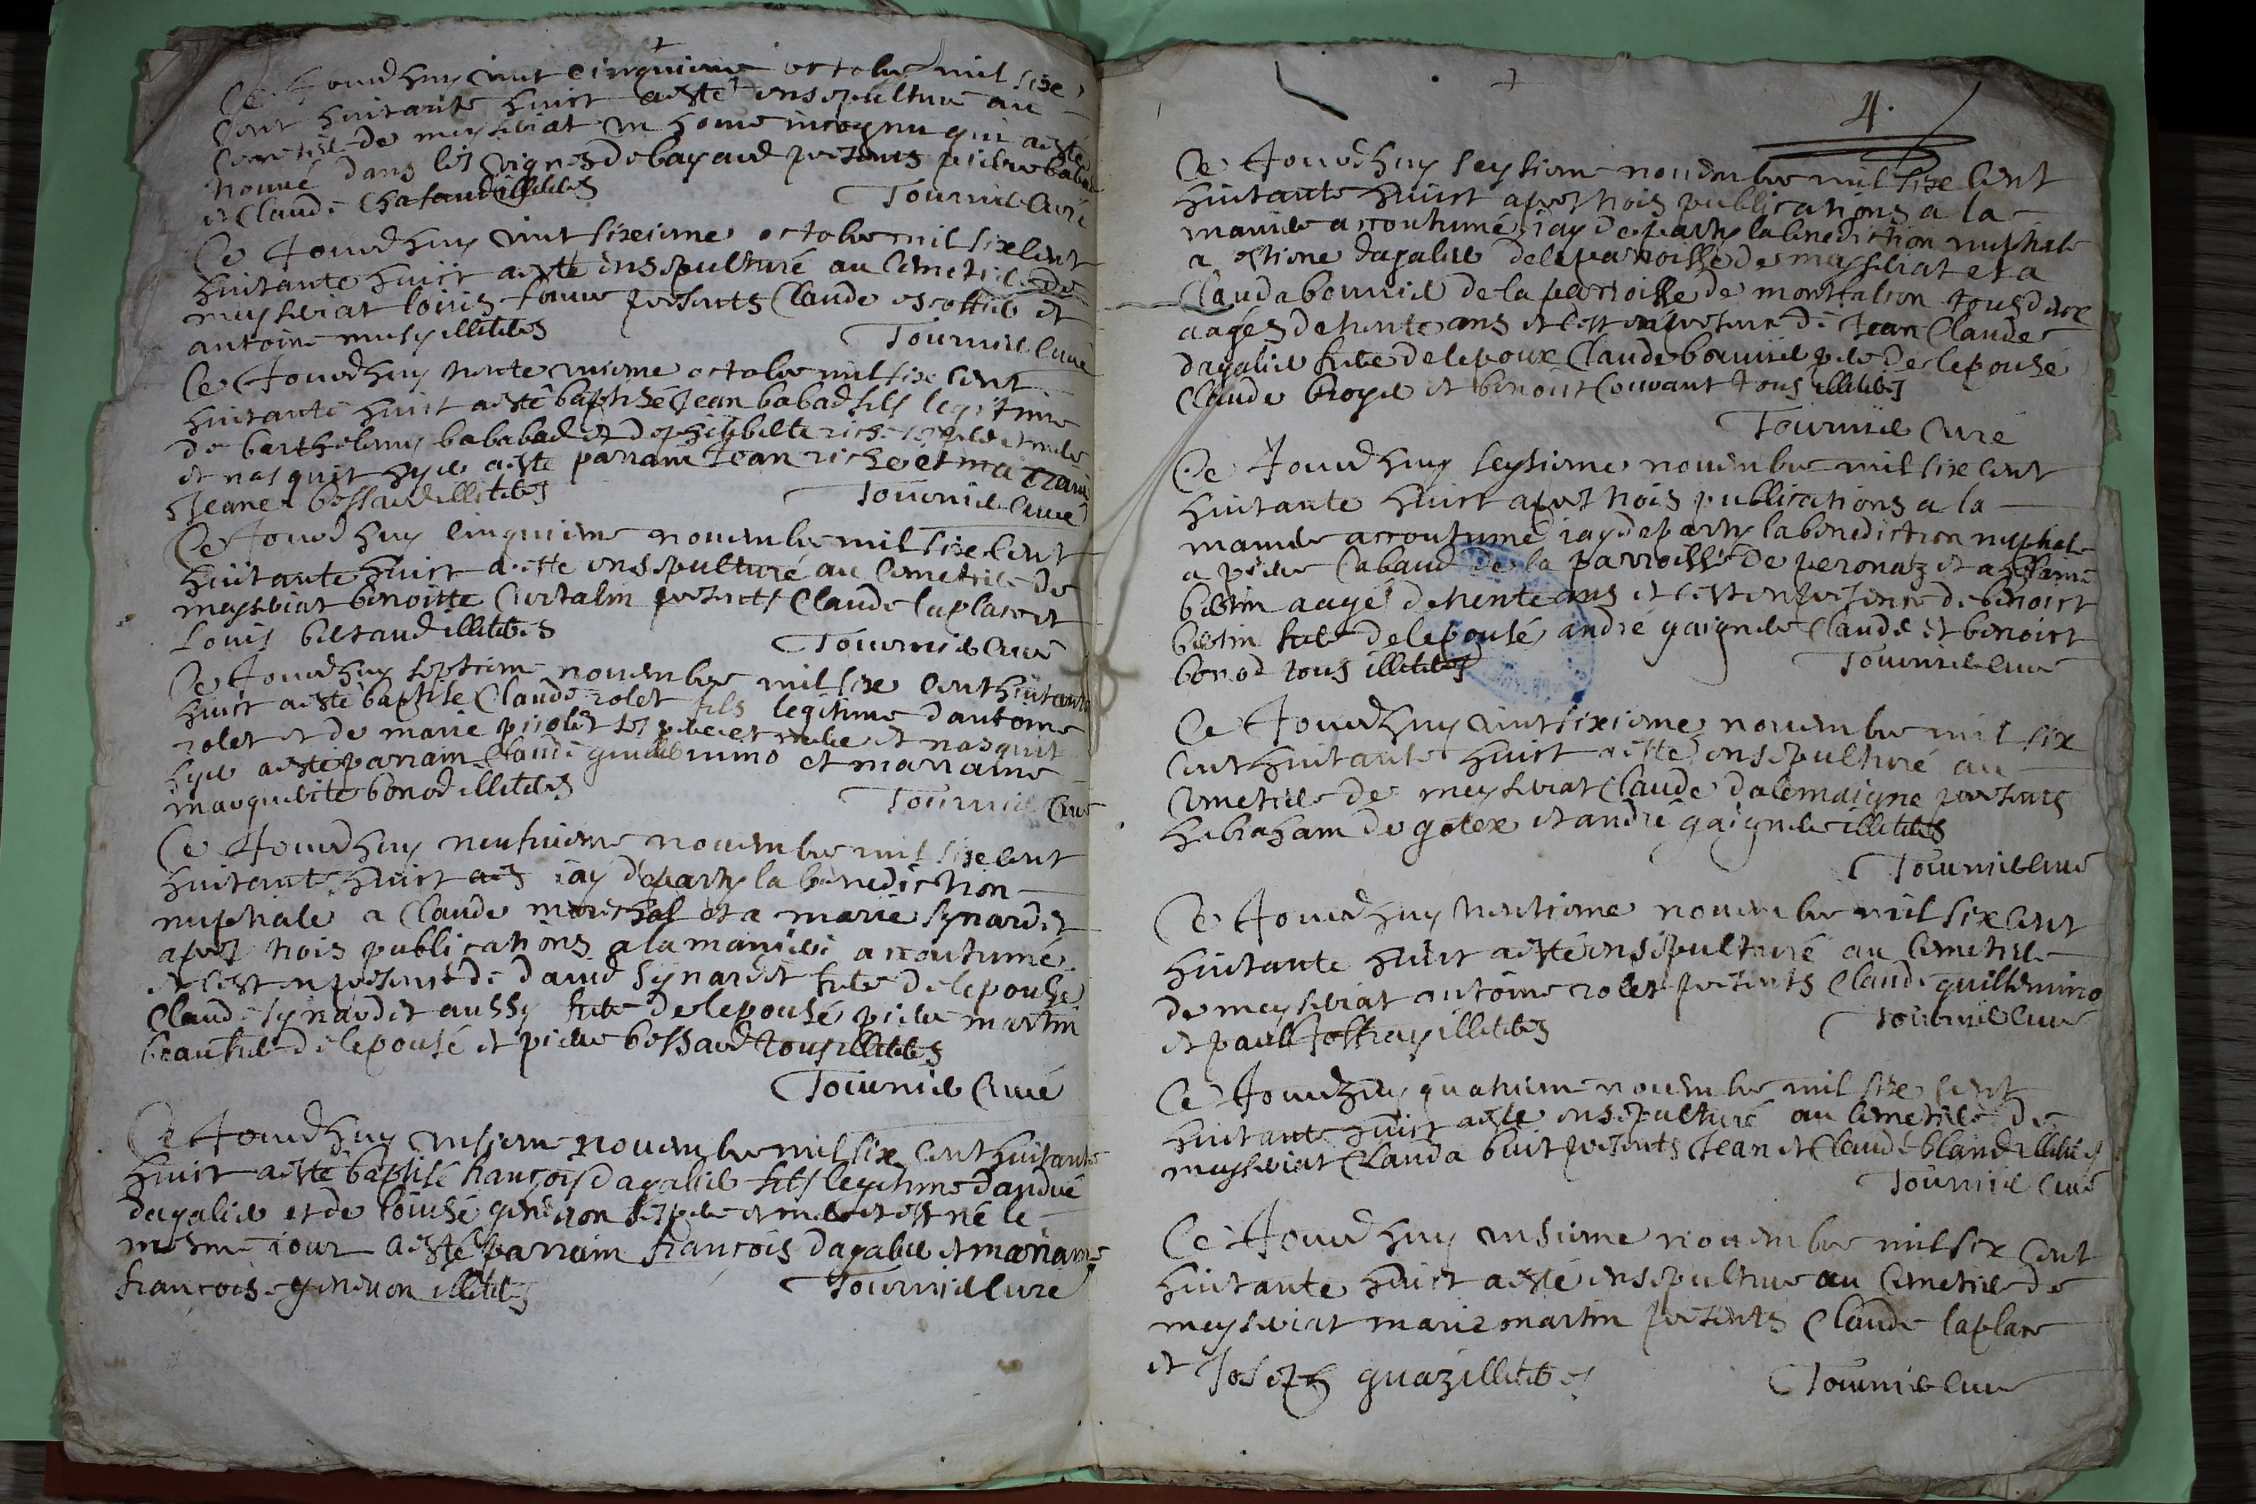 Ce Jourdhuy vint cinquieme octobre mil sixe
cent huitante huict a esté ensepulturé au
cemetiere de meysseriat un home incognu qui a esté
trouvé dans les vignes de bayard presents pierre babad
et Claude Chataud illiteres Tournier Curé
Ce Jourdhuy vint sixieme octobre mil sixe cent
huitante huict a esté ensepulturé au cemetiere de
meysseriat loüis presents Claude escoffier et
antoine musy illiteres Tournier Curé
Ce Jourdhuy trente unieme octobre mil sixe cent
huitante huict a esté baptisé Jean babad fils legitime
de barthelemy babad et de philiberte riche ses pere et mere
et nasquit hyer a esté parrain Jean riche et marraine
Jeane bossard illiteres Tournier Curé
Ce Jourdhuy cinquieme novembre mil sixe cent
huitante huict a esté ensepulturé au cemetiere de
meysseriat benoitte Curtalin presents Claude laplace et
Louis bertaud illiteres Tournier Curé
Ce Jourdhuy septieme novembre mil sixe cent huitante
huict a esté baptisé Claude rolet fils legitime dantoine
rolet et de marie pirolet ses pere et mere et nasquit
hyer a esté parrain Claude guillermino et marraine
marguerite bonod illiteres Tournier Curé
Ce Jourdhuy neufvieme novembre mil sixe cent
huitante huict iay départy la benediction
nuptiale a Claude mareschal et a marie synardet
apres trois publications a la maniere accoutumé
et cest en presence de david synardet frere de lepouse
Claude synardet aussy frere de lepousé pierre martin
beaufrere de lepousé et pierre bossard tous illiteres
Tournier Curé
Ce Jourdhuy unsieme novembre mil six cent huitante
huict a esté baptisé françois dagalier fils legitime dandré
dagalier et de loüise genevon ses pere et mere et est né le
mesme iour a esté parrain françois dagalier et marraine
françoise genevon illiteres Tournier Curé
4.
Ce Jourdhuy seysieme novembre mil sixe cent
huitante huict apres trois publications a la
maniere accoutumé iay departy la benediction nuptiale
a estiene dagalier de la parroisse de meysseriat et a
Clauda bournier de la parroisse de montfalcon tous deux
aages de trente ans et cest en presence de Jean Claude
dagalier frere de lepoux Claude bournier pere de lepousé
Claude broyer et benoit Couvant tous illiteres
Tournier Curé
Ce Jourdhuy seysieme novembre mil sixe cent
huitante huict apres trois publications a la
maniere accoutumé iay departy la benediction nuptiale
a pierre Cabaud de la parroisse de peronatz et a estiene
bertin aagé de trente ans et cest en presence de benoict
bertin frere de lepousé andré gaignere Claude et benoict
bonod tous illiteres Tournier Curé
Ce Jourdhuy vint sixieme novembre mil six
cent huitante huict a esté ensepulturé au
cemetiere de meysseriat Claude dalemaigne presents
habraham de golex et andré gaignere illiteres
Tournier Curé
Ce Jourdhuy trentieme novembre mil six cent
huitante huict a esté ensepulturé au cemetiere
de meysseriat antoine rolet presents Claude guillermino
et paull Joffray illiteres Tournier Curé
Ce Jourdhuy quatrieme novembre mil sixe cent
huitante huict a esté ensepulturé au cemetiere de
meysseriat Clauda buit presents Jean et Claude bland illiteres
Tournier Curé
Ce Jourdhuy unsieme novembre mil six cent
huitante huict a esté ensepulturé au cemetiere de
meysseriat marie martin presents Claude laplace
et Joseph guaz illiteres Tournier Curé